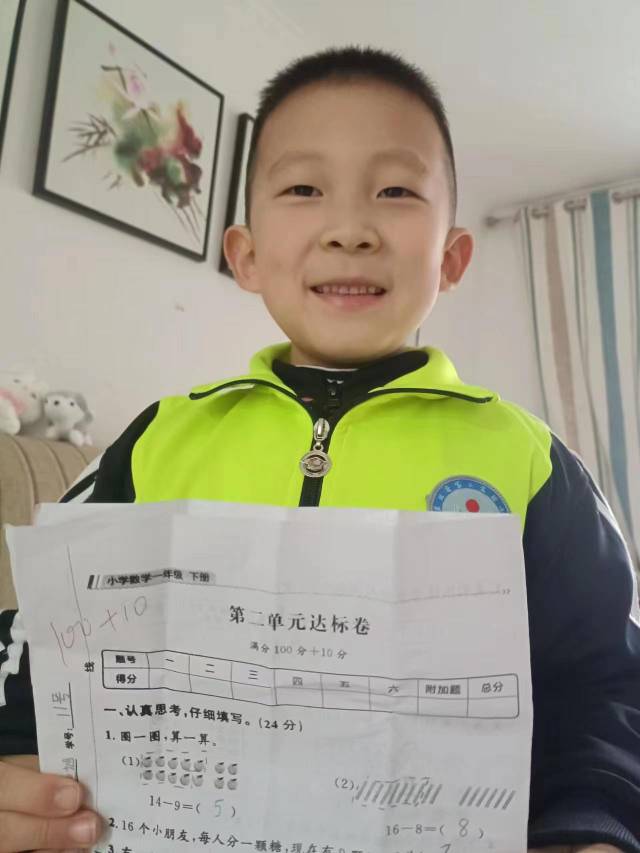 小学数学一年级 下册
100+10
第二单元达标卷
满分 100 分+10 分
题号 一 二 三 四 五 六 附加题 总分
得分
学号: 11号
一、认真思考,仔细填写。(24 分)
1. 圈一圈,算一算。
(1)
(2)
14-9=( 5 )
16-8=( 8 )
2. 16 个小朋友,每人分一颗糖,现在有